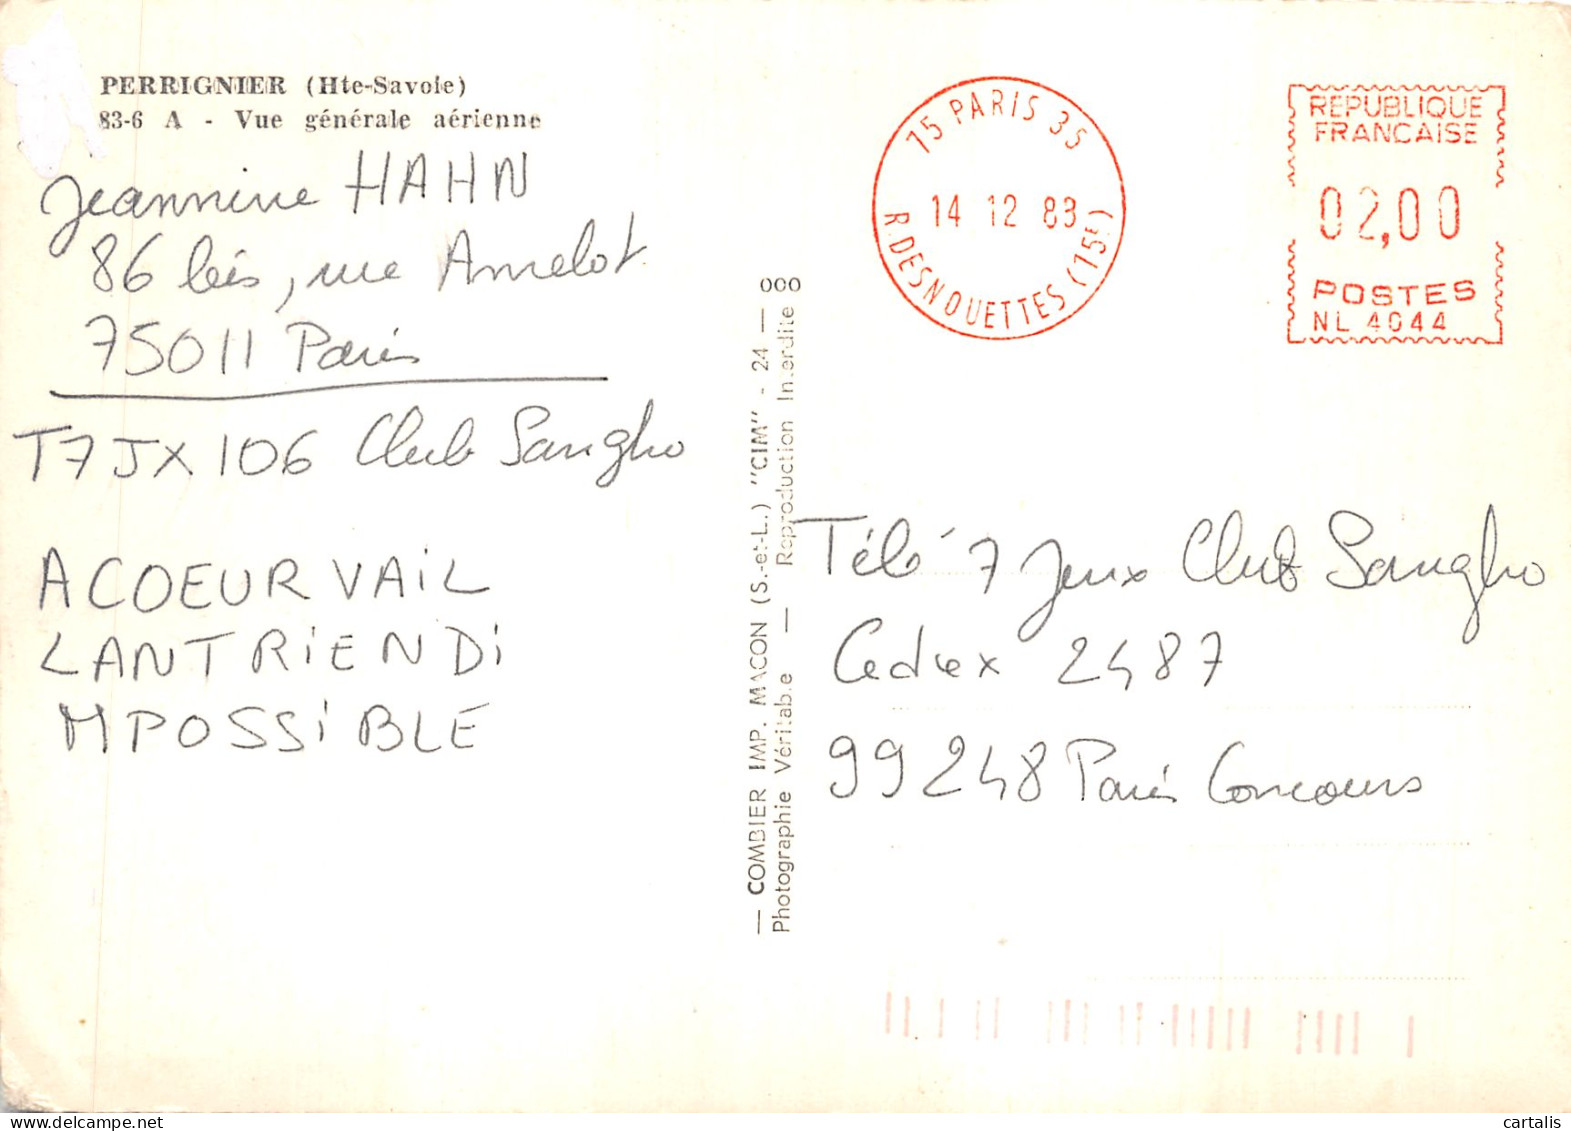 PERRIGNIER (Hte-Savoie)
83-6 A - Vue générale aérienne
Jeannine HAHN
86 bis, rue Amelot
75011 Paris
T7JX106 Club Sangho
ACOEURVAiL
LANTRiENDi
MPOSSiBLE
000
— COMBIER IMP. MACON (S.-et-L.) "CIM" - 24 —
Photographie Véritable — Reproduction Interdite
75 PARIS 35
14 12 83
R.DESNOUETTES (15E)
REPUBLIQUE
FRANCAISE
02,00
POSTES
NL 4044
Télé 7 Jeux Club Sangho
Cedex 2487
99248 Paris Concours
cartalis
www.delcampe.net